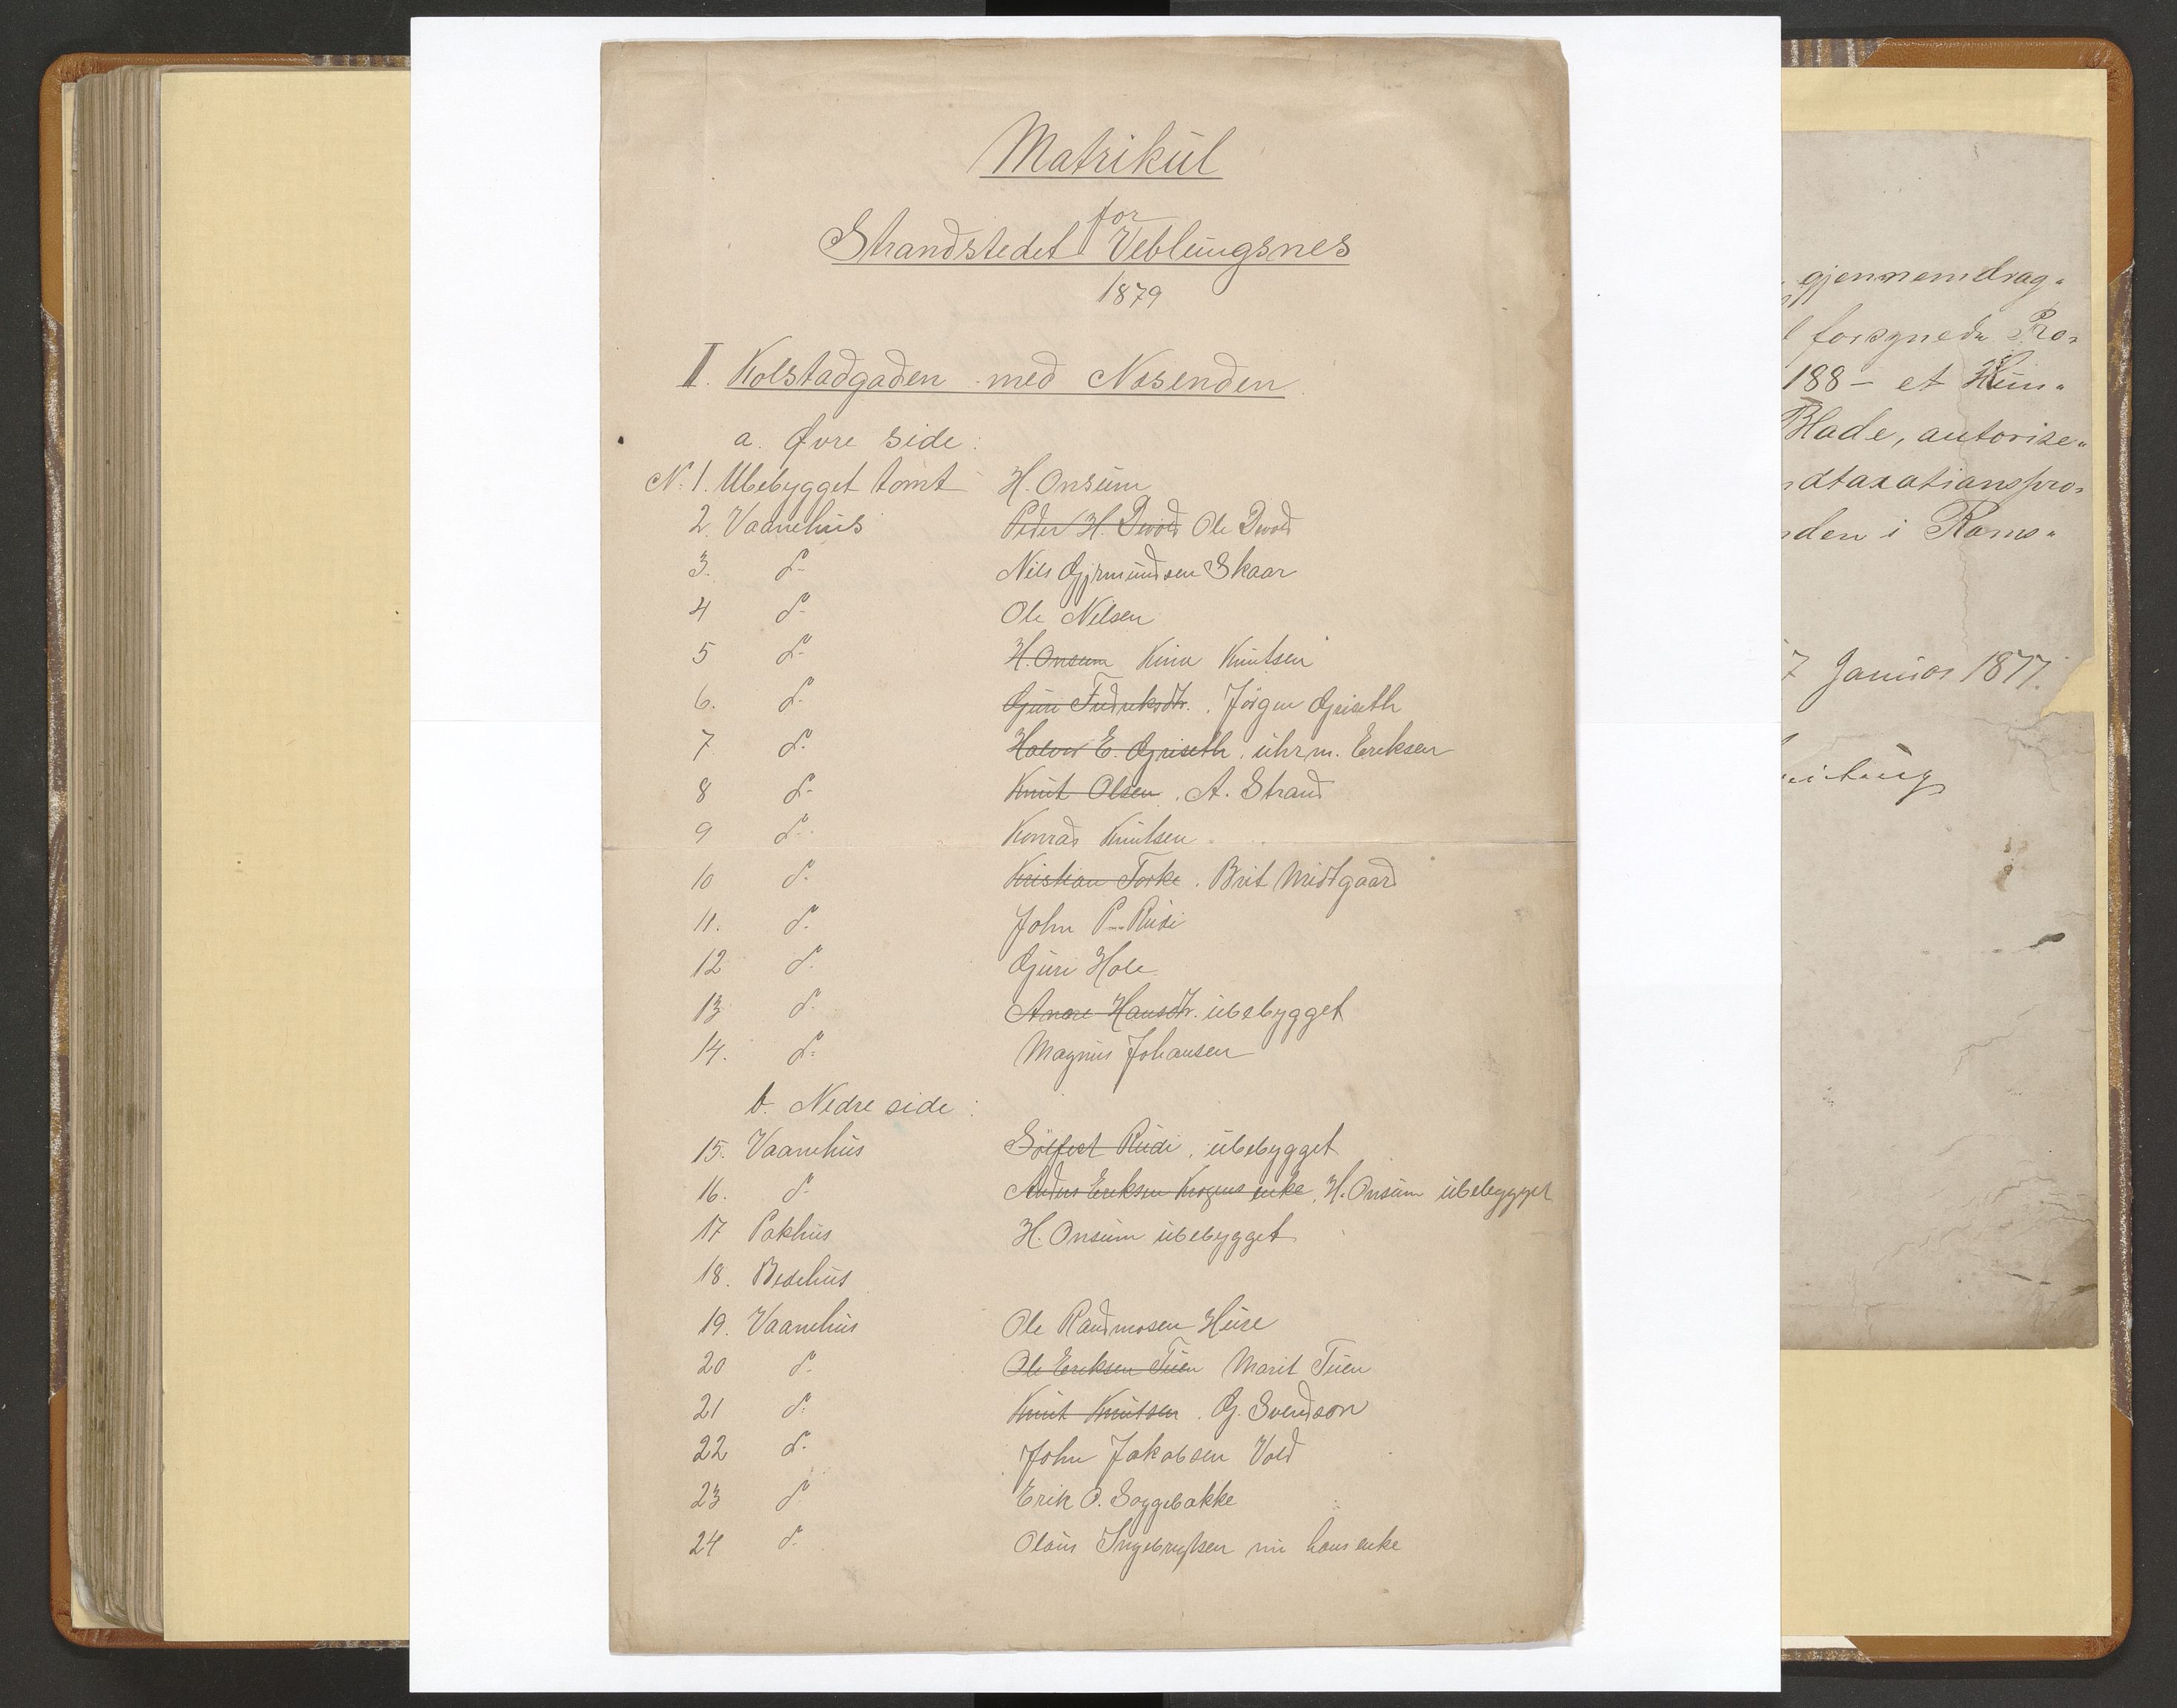 Matrikul
for
Strandstedet Veblungsnes
1879
I. Kolstadgaden med Næsenden
a. Øvre side:
N. 1. Ubebygget tomt H. Onsum
2. Vaanehus Peder H. Devold Ole Devold
3. do Nils Gjermundsen Skaar
4 do Ole Nilsen
5 do H. Onsum Knutsen
6. do Guri Fredriksdtr. Jörgen Griseth
7 do Halvor E. Griseth. uhrm. Eriksen
8 do Knut Olsen. A. Strand
9 do Konrad Knutsen
10 do Kristian Torke. Brit Midtgaard
11. do John P. Rudi
12 do Guri Hole
13 do Hansdtr. ubebygget
14. do Magnus Johansen
b. Nedre side:
15. Vaanehus Rudi. ubebygget
16. do Anders Eriksen enke. H. Onsum ubebygget
17 Pakhus H. Onsum ubebygget
18. Bedehus
19. Vaanehus Ole Randmosen
20 do Ole Eriksen Tuen Marit Tuen
21 do Knut Knutsen. G. Svendson
22 do John Jakobsen Vold
23 do Erik O. Soggebakke
24 do Olaus Ingebrigtsen nu hans enke
gjennemdrag-
forsynede Pro-
188- et Hun-
Blade, autorise-
dtaxationspro-
den i Roms-
7 Januar 1877.